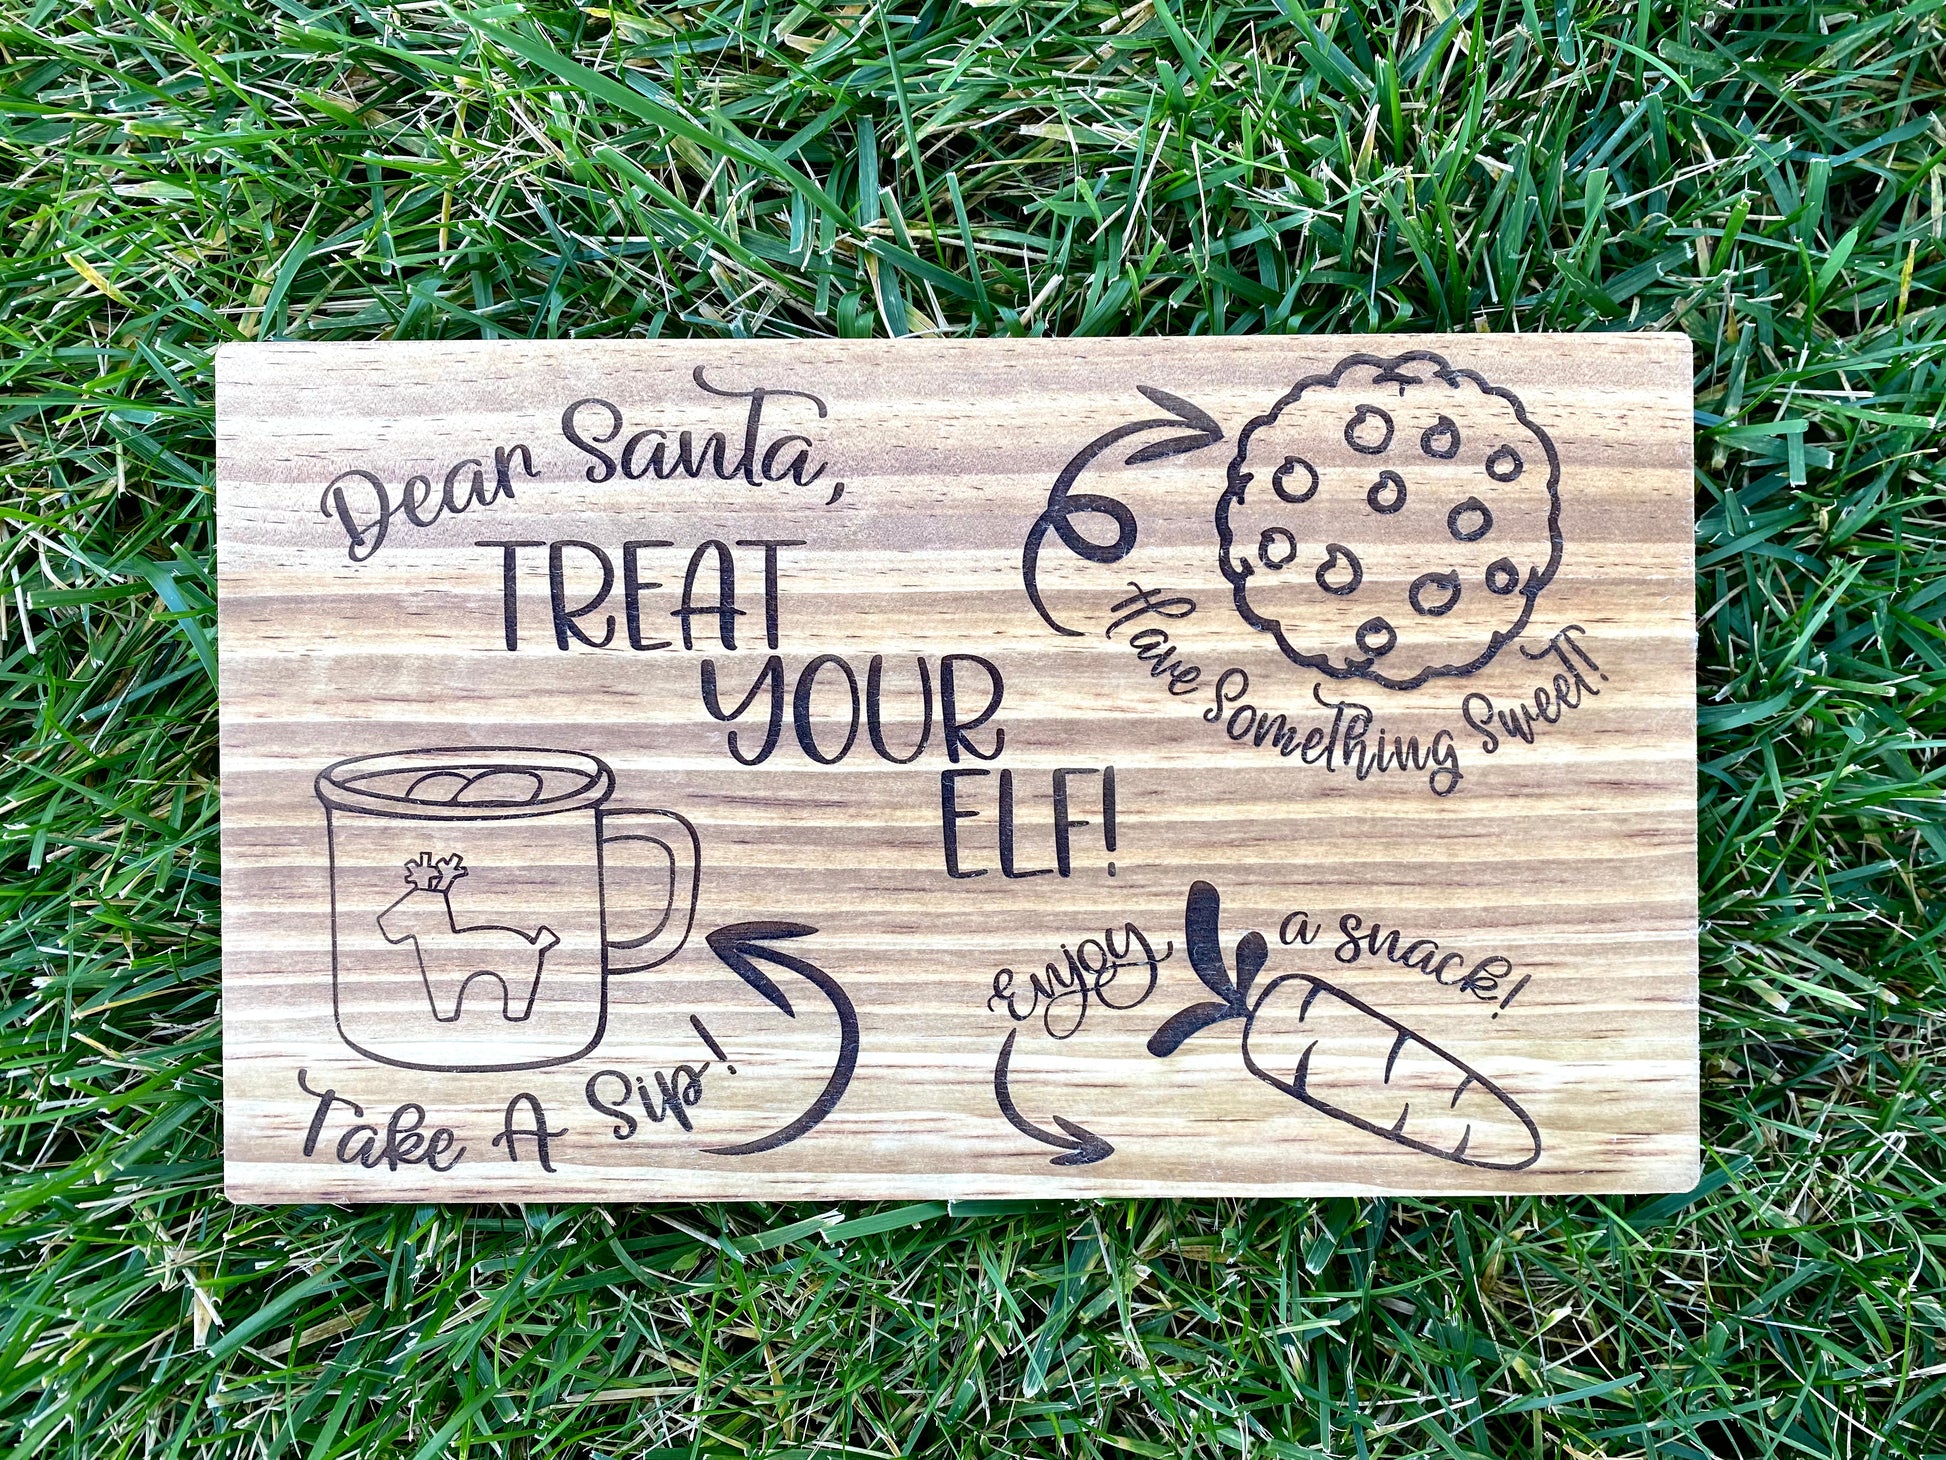 Dear Santa,
TREAT
YOUR
ELF!
Have Something Sweet!
Take A Sip!
Enjoy a snack!